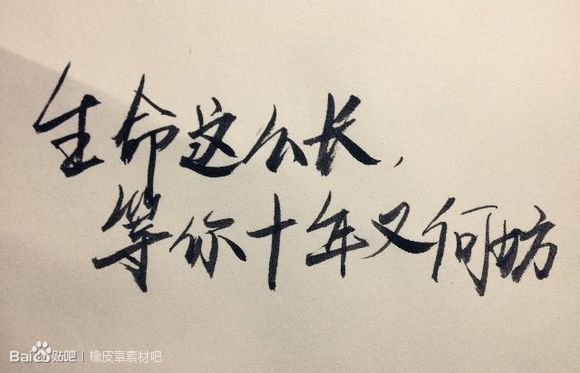 生命这么长，
等你十年又何妨
Bai贴吧 | 橡皮章素材吧